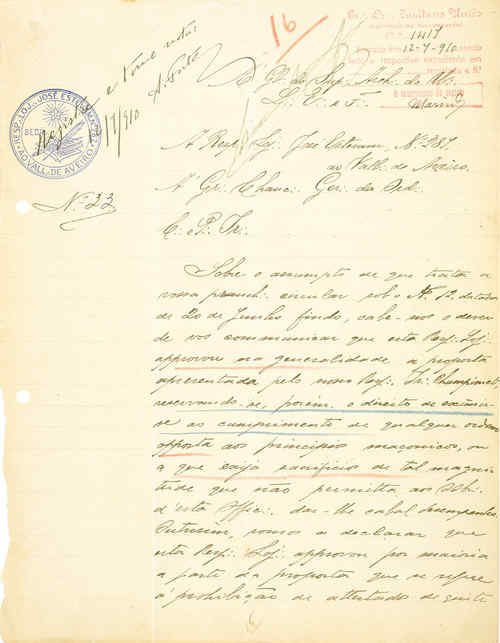 16
1417
12-7-910
Registe e tome nota
/7/910
RESP∴ LOJ∴ JOSÉ ESTEVAM
AO VALL∴ DE AVEIRO
SEDE
Nº 23
Á Gl∴ do Sup∴ Arch∴ do Un∴
L∴ E∴ e F∴
A Resp∴ Loj∴ José Estevam, Nº 287,
ao Vall∴ de Aveiro.
Á Gr∴ Chanc∴ Ger∴ da Ord∴
C∴ P∴ Ir∴
Sobre o assumpto de que trata a
vossa pranch∴ circular sob o Nº 12, datada
de 20 de Junho findo, cabe-nos o dever
de vos communicar que esta Resp∴ Loj∴
approvou na generalidade a proposta
apresentada pelo nosso Resp∴ Ir∴ Championnet,
reservando-se, porém, o direito de eximir-
se ao cumprimento de qualquer ordem
opposta aos principios maçonicos, ou
a que exija sacrificios de tal magni-
tude que não permitta aos Obr∴
d'esta Offic∴ dar-lhe cabal desempenho.
Outrosim, vimos a declarar que
esta Resp∴ Loj∴ approvou por maioria
a parte da proposta que se refere
á prohibição de attestados de quite